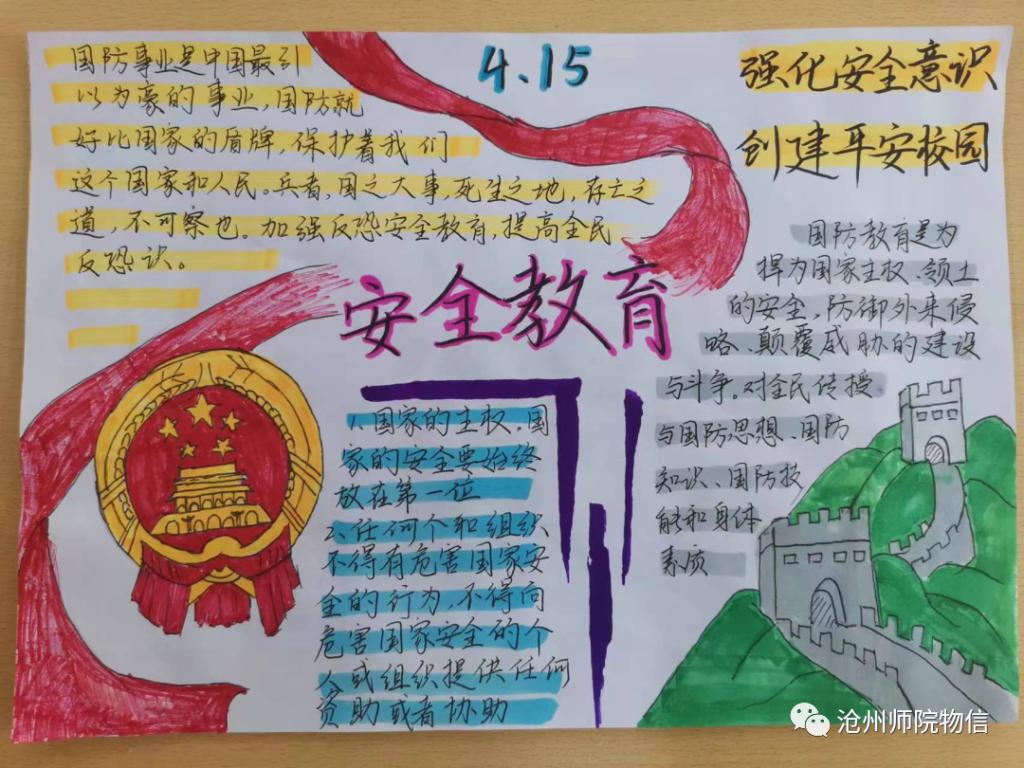 国防事业是中国最引
以为豪的事业,国防就
好比国家的盾牌,保护着我们
这个国家和人民。兵者,国之大事,死生之地,存亡之
道,不可察也。加强反恐安全教育,提高全民
反恐识。
4.15
强化安全意识
创建平安校园
安全教育
1、国家的主权。国
家的安全要始终
放在第一位
2、任何个和组织
不得有危害国家安
全的行为,不得向
危害国家安全的个
人或组织提供任何
资助或者协助
国防教育是为
捍为国家主权、领土
的安全,防御外来侵
略、颠覆威胁的建设
与斗争。对全民传授
与国防思想、国防
知识、国防技
能和身体
素质
沧州师院物信